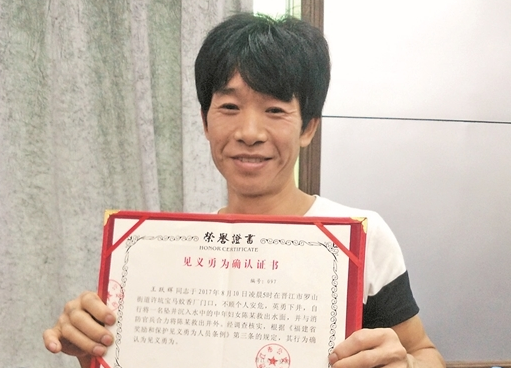 荣誉證書
HONOR CERTIFICATE
见义勇为确认证书
编号：697
同志于2017年6月10日凌晨5时在晋江市罗山
街道许坑宝马蚊香厂门口，不顾个人安危，英勇下井，自
行将一名坠井沉入水中的中年妇女陈某救出水面，并与消
防官兵合力将陈某救出井外。经调查核实，根据《福建省
奖励和保护见义勇为人员条例》第三条的规定，其行为确
认为见义勇为。